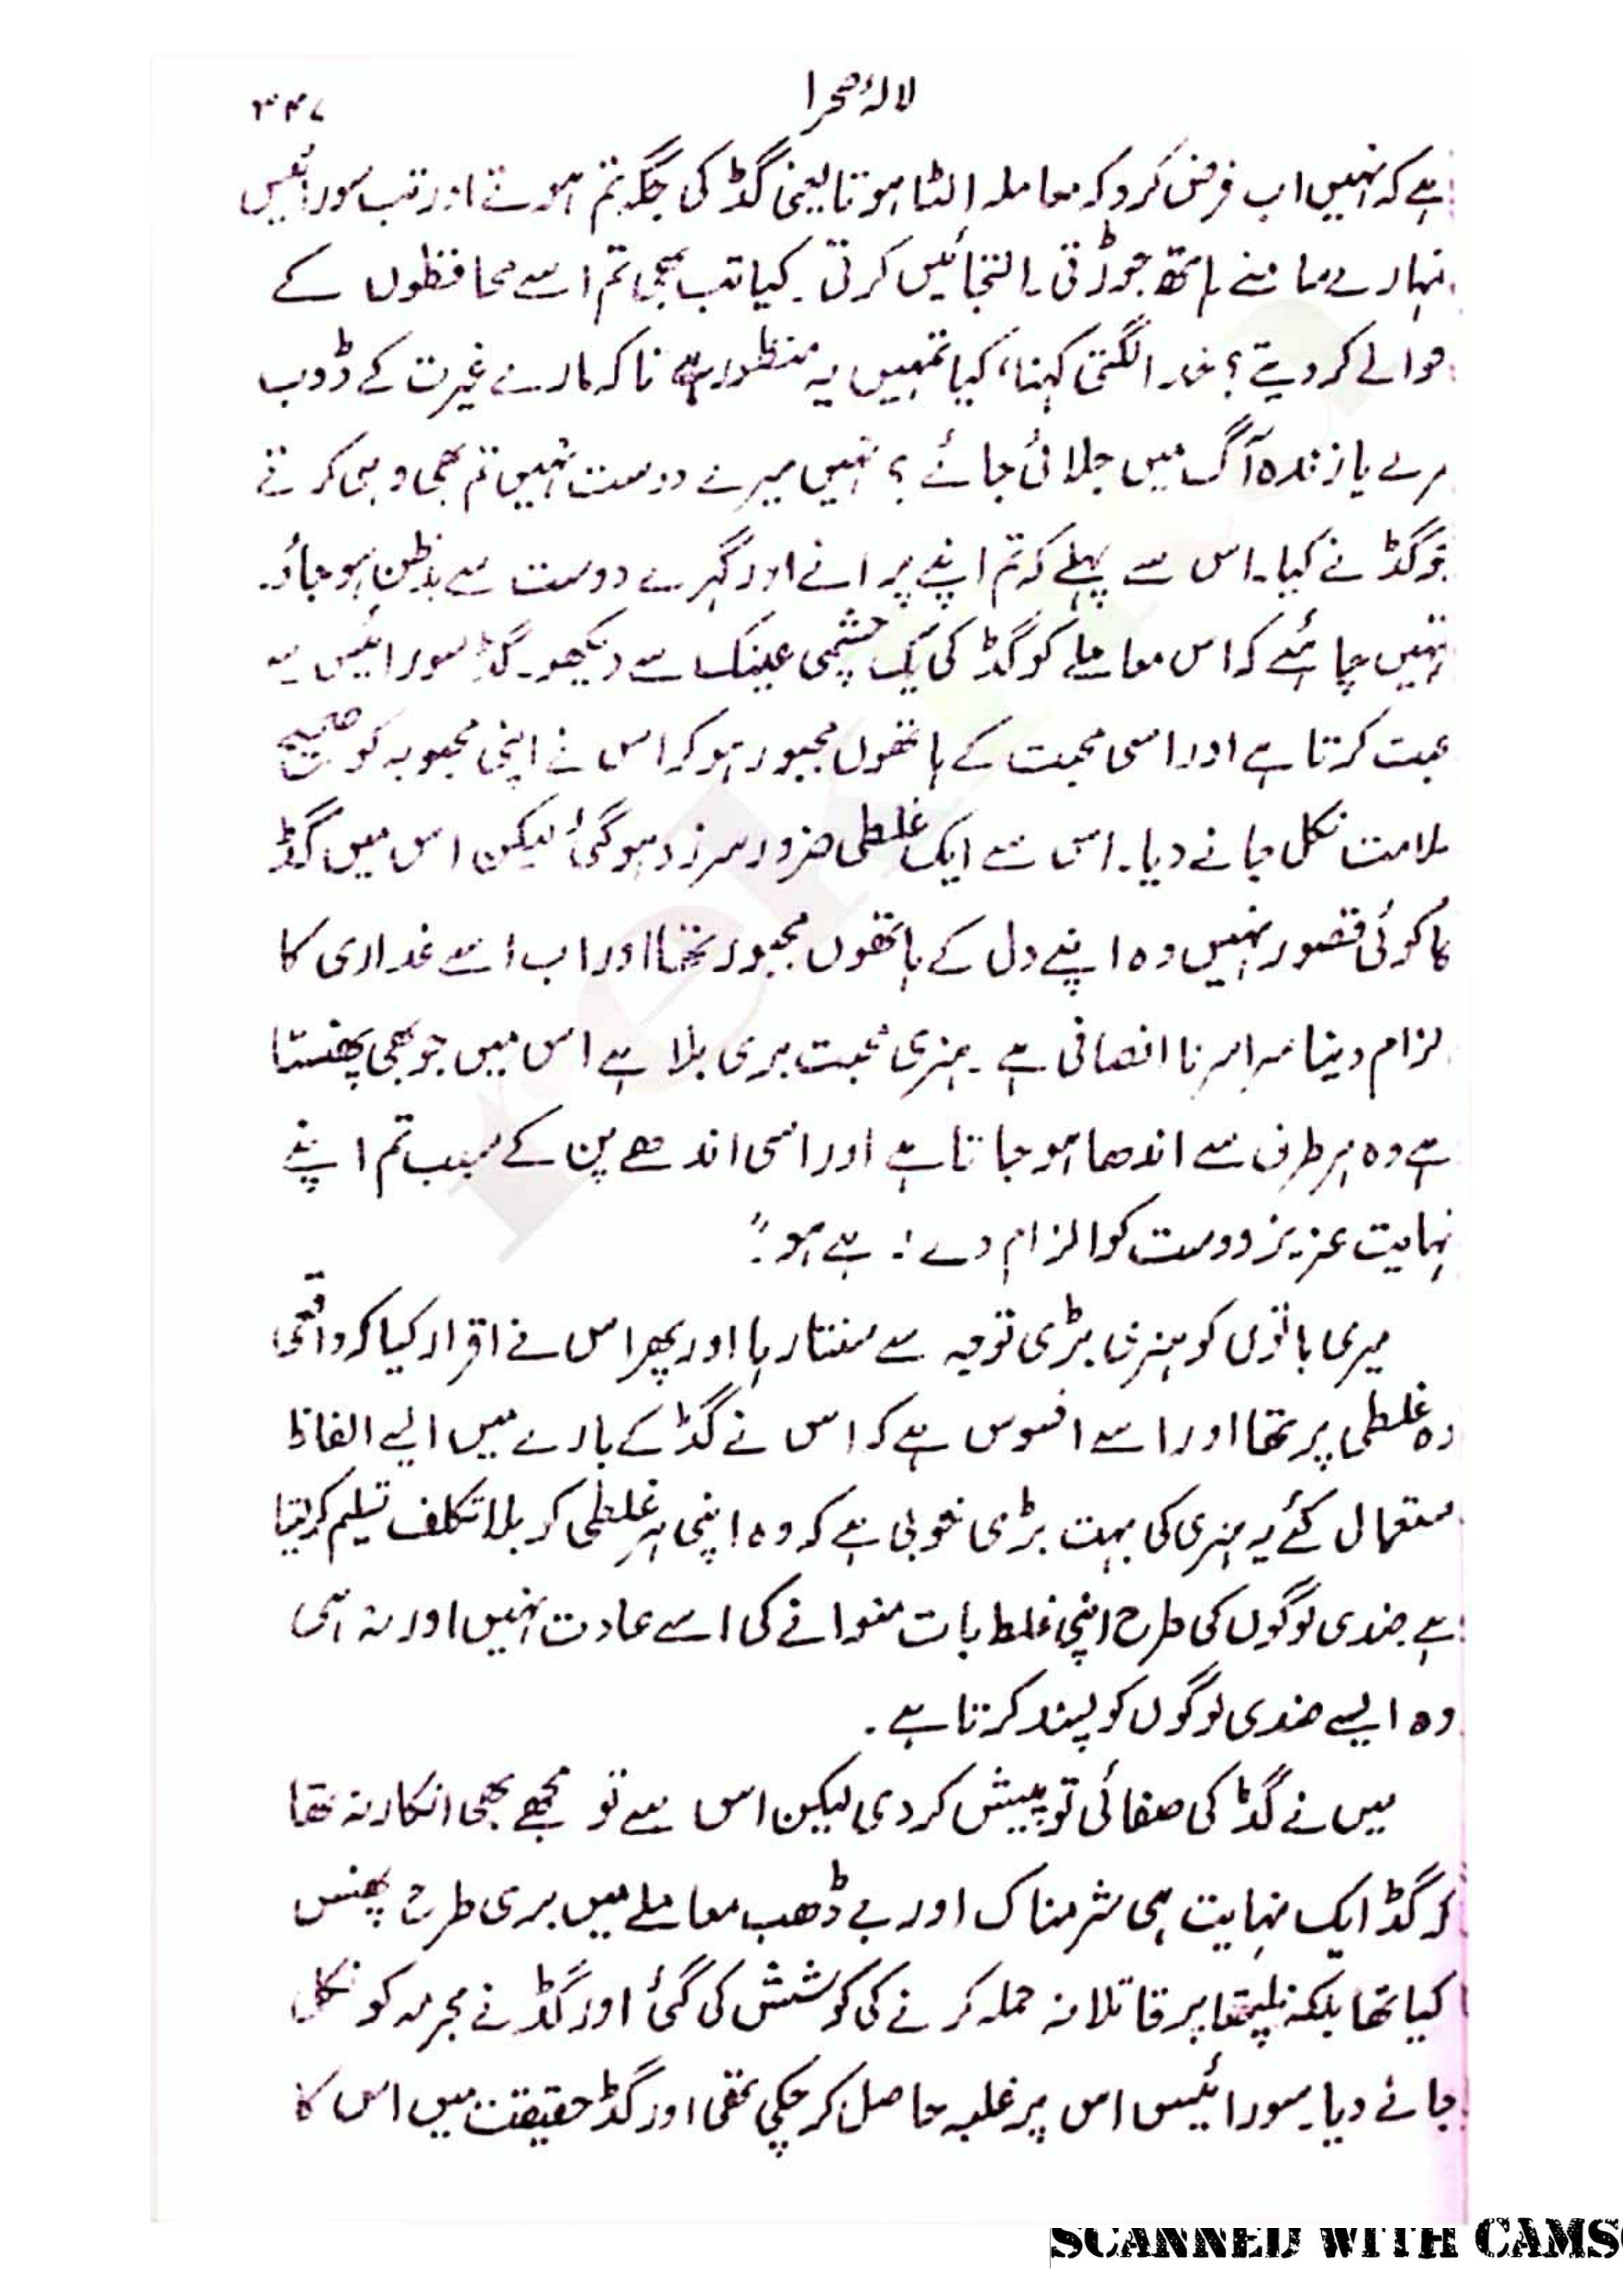 لالۂ صحرا
۳۴۷
ہے کہ نہیں اب فرض کرو کہ معاملہ الٹا ہوتا یعنی گڈ کی جگہ تم ہوتے اور تب سورائیس
تمہارے سامنے ہاتھ جوڑتی۔ التجائیں کرتی۔ کیا تب بھی تم اسے محافظوں کے
حوالے کر دیتے؟ خدا لگتی کہنا، کیا تمہیں یہ منظور ہے تاکہ مارے غیرت کے ڈوب
مرے یا زندہ آگ میں جلائی جائے؟ نہیں میرے دوست نہیں تم بھی وہی کرتے
جو گڈ نے کیا۔ اس سے پہلے کہ تم اپنے پرانے اور گہرے دوست سے بدظن ہو جاؤ۔
تمہیں چاہئے کہ اس معاملے کو گڈ کی یک چشمی عینک سے دیکھو۔ گڈ سورائیس سے
محبت کرتا ہے اور اسی محبت کے ہاتھوں مجبور ہو کر اس نے اپنی محبوبہ کو صحیح
سلامت نکل جانے دیا۔ اس سے ایک غلطی ضرور سرزد ہو گئی لیکن اس میں گڈ
کا کوئی قصور نہیں وہ اپنے دل کے ہاتھوں مجبور تھا اور اب اسے غداری کا
الزام دینا سراسر نا انصافی ہے۔ ہنری محبت بری بلا ہے اس میں جو بھی پھنستا
ہے وہ ہر طرف سے اندھا ہو جاتا ہے اور اسی اندھے پن کے سبب تم اپنے
نہایت عزیز دوست کو الزام دے رہے ہو۔"
میری باتوں کو ہنری بڑی توجہ سے سنتا رہا اور پھر اس نے اقرار کیا کہ واقعی
وہ غلطی پر تھا اور اسے افسوس ہے کہ اس نے گڈ کے بارے میں ایسے الفاظ
استعمال کئے یہ ہنری کی بہت بڑی خوبی ہے کہ وہ اپنی ہر غلطی کو بلا تکلف تسلیم کر لیتا
ہے ضدی لوگوں کی طرح اپنی غلط بات منوانے کی اسے عادت نہیں اور نہ ہی
وہ ایسے ضدی لوگوں کو پسند کرتا ہے۔
میں نے گڈ کی صفائی تو پیش کر دی لیکن اس سے تو مجھے بھی انکار نہ تھا
کہ گڈ ایک نہایت ہی شرمناک اور بے ڈھب معاملے میں بری طرح پھنس
گیا تھا بلکہ نلیپتھا پر قاتلانہ حملہ کرنے کی کوشش کی گئی اور گڈ نے مجرمہ کو نکل
جانے دیا۔ سورائیس اس پر غلبہ حاصل کر چکی تھی اور گڈ حقیقت میں اس کا
SCANNED WITH CAMS